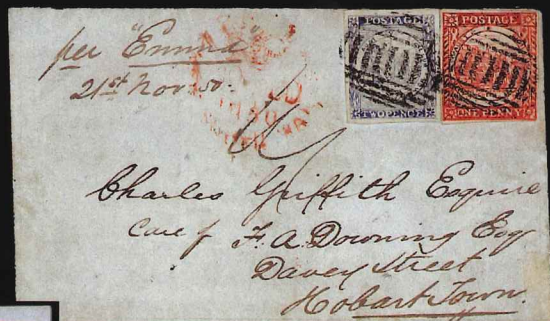 per "Emma"
21st Nov 50.
POSTAGE
TWO PENCE
POSTAGE
ONE PENNY
Charles Griffith Esquire
Care of F. A. Downing Esq
Davey Street
Hobart Town.